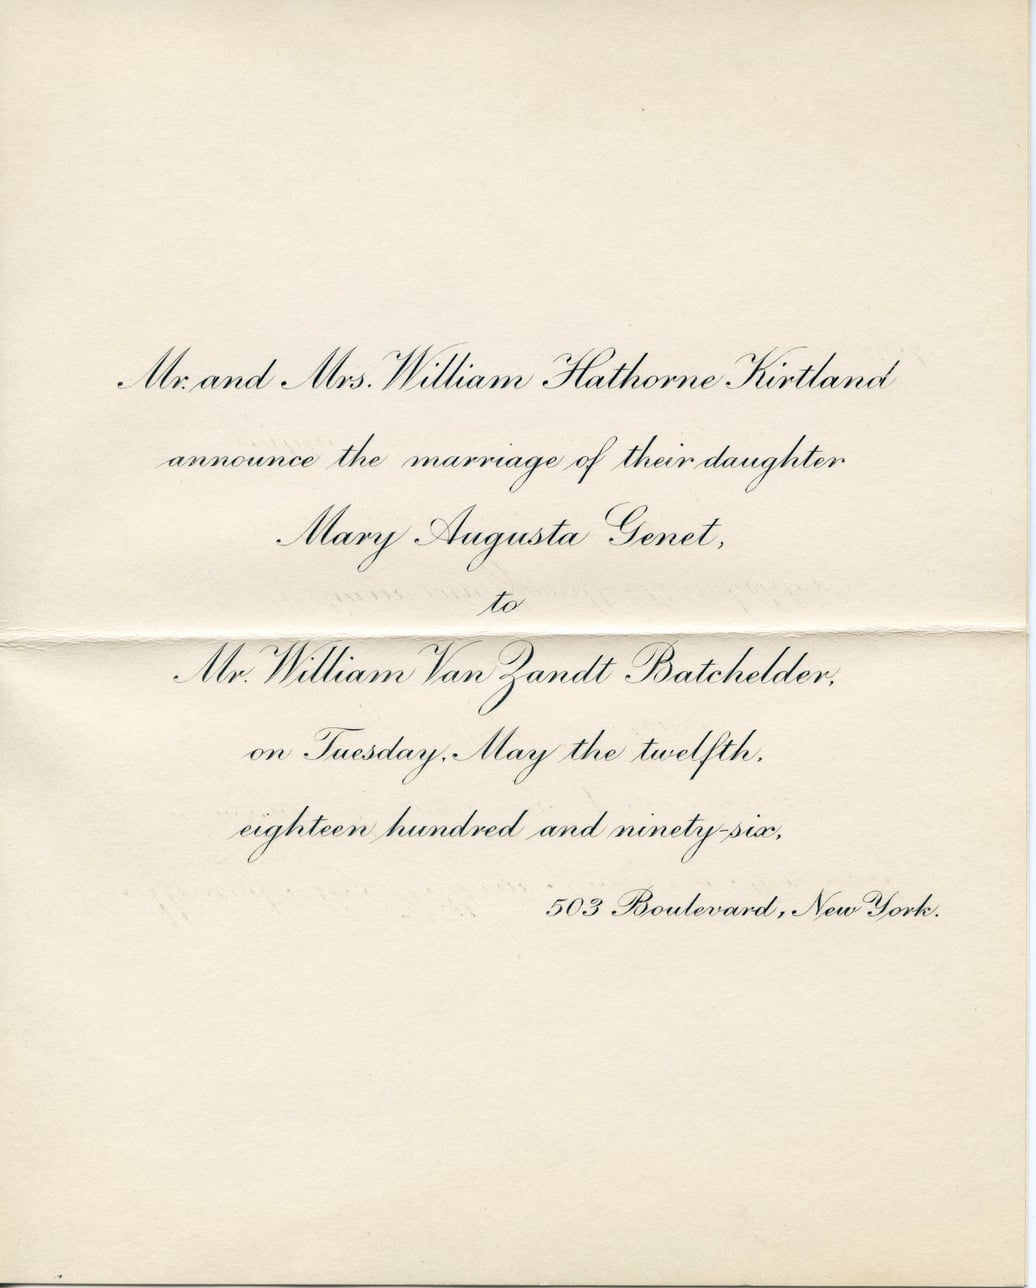 Mr. and Mrs. William Hathorne Kirtland
announce the marriage of their daughter
Mary Augusta Genet,
to
Mr. William Van Zandt Batchelder,
on Tuesday, May the twelfth,
eighteen hundred and ninety-six,
503 Boulevard, New York.